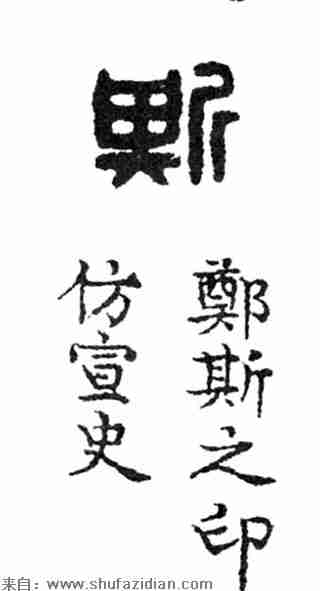 斯
鄭斯之印
仿宣史
来自：www.shufazidian.com